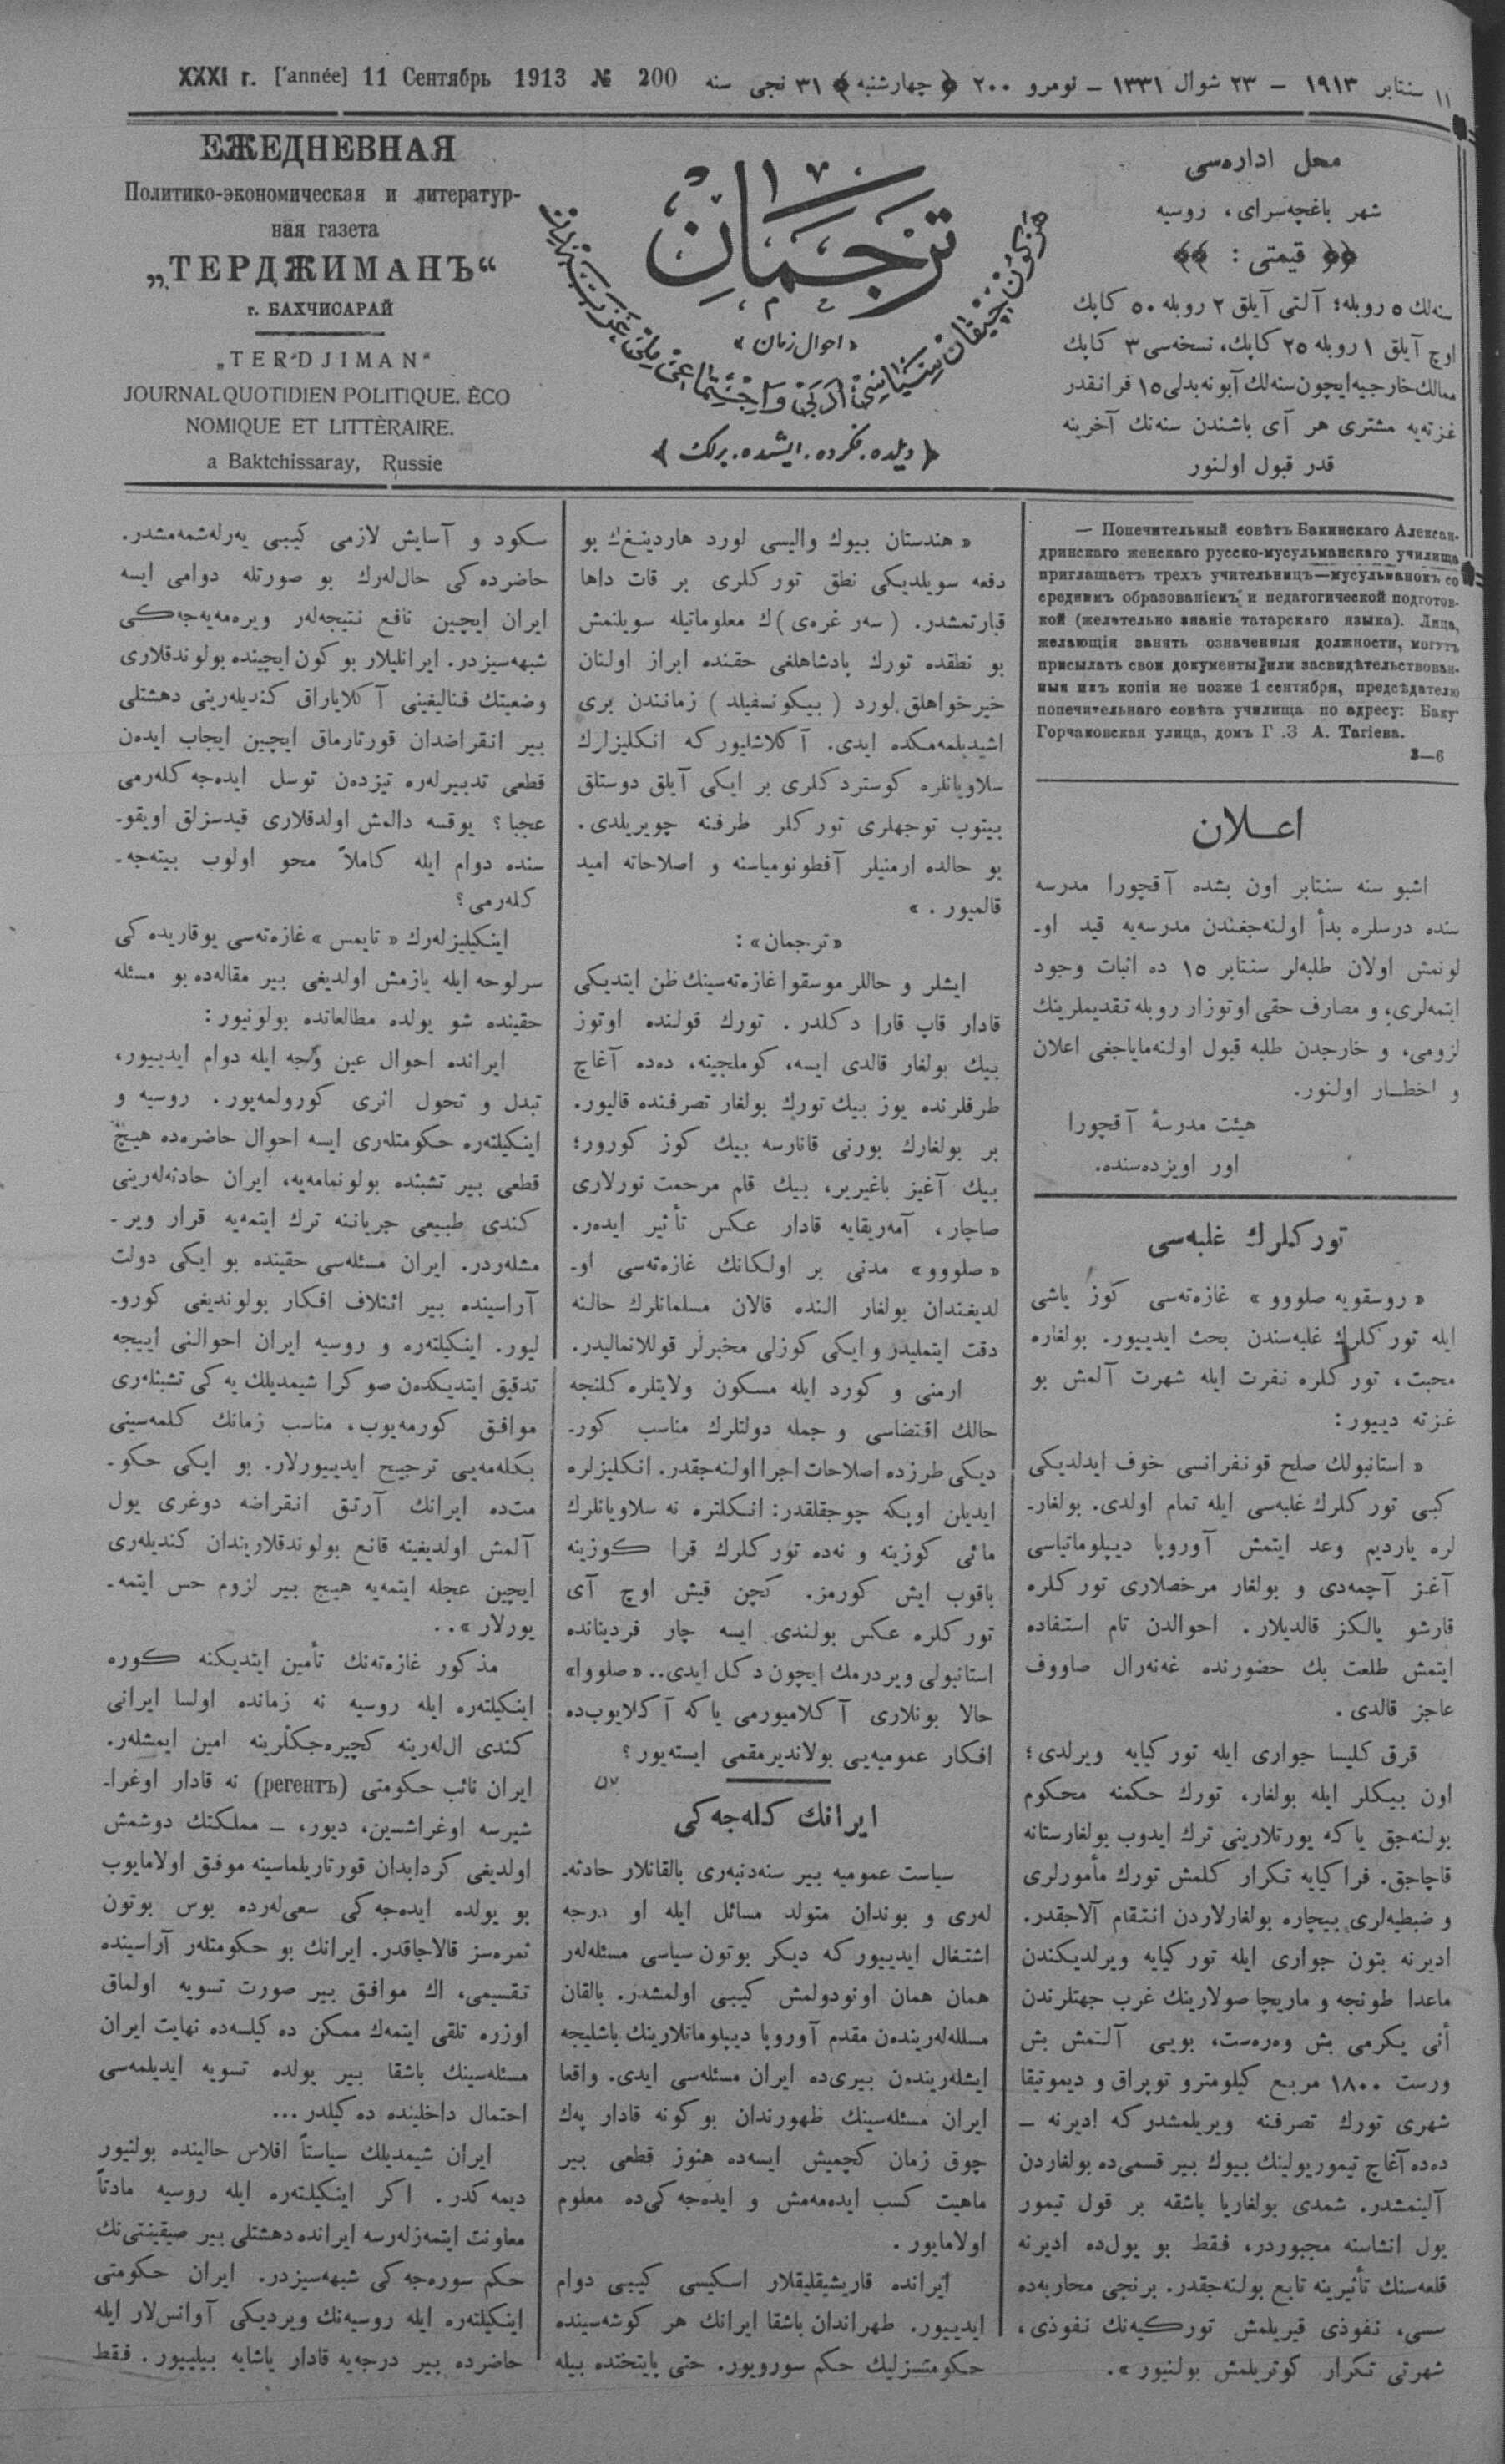 XXXI г. [année] 11 Сентябрь 1913 № 200
۱۱ سنتابر ۱۹۱۳ – ۲۳ شوال ۱۳۳۱ – نومرو ۲۰۰ ﴿ چهارشنبه ﴾ ۳۱ نجی سنه
ЕЖЕДНЕВНАЯ
Политико-экономическая и литератур-
ная газета
„ТЕРДЖИМАНЪ“
г. БАХЧИСАРАЙ
„TERDJIMAN“
JOURNAL QUOTIDIEN POLITIQUE. ÈCO
NOMIQUE ET LITTÈRAIRE.
a Baktchissaray, Russie
ترجمان
« احوال زمان »
هر كون چیقان سیاسی، ادبی و اجتماعی ملی غزته در
﴿ دیلده. فكرده. ایشده. برلك ﴾
محل اداره‌سی
شهر باغچه‌سرای، روسیه
﴿﴿ قیمتی : ﴾﴾
سنه‌لك ۵ روبله؛ آلتی آیلق ۲ روبله ۵۰ كاپك
اوچ آیلق ۱ روبله ۲۵ كاپك، نسخه‌سی ۳ كاپك
ممالك خارجیه ایچون سنه‌لك آبونه بدلی ۱۵ فرانقدر
غزته‌یه مشتری هر آی باشندن سنه‌نك آخرینه
قدر قبول اولنور
— Попечительный совѣтъ Бакинскаго Александ-
дринскаго женскаго русско-мусульманскаго училища
приглашаетъ трехъ учительницъ—мусульманокъ со
среднимъ образованіемъ и педагогической подготов-
кой (желательно знаніе татарскаго языка). Лица,
желающія занять означенныя должности, могутъ
присылать свои документы или засвидѣтельствован-
ныя ихъ копіи не позже 1 сентября, предсѣдателю
попечительнаго совѣта училища по адресу: Баку
Горчаковская улица, домъ Г .З А. Тагіева.
3—6
اعـــلان
اشبو سنه سنتابر اون بشده آقچورا مدرسه
سنده درسلره بدأ اولنه‌جغندن مدرسه‌یه قید او-
لونمش اولان طلبه‌لر سنتابر ۱۵ ده اثبات وجود
ایتمه‌لری، و مصارف حقی اوتوزار روبله تقدیملرینك
لزومی، و خارجدن طلبه قبول اولنه‌مایاجغی اعلان
و اخطـار اولنور.
هیئت مدرسهٔ آقچورا
اور اویزده‌سنده.
توركلرك غلبه‌سی
« روسقویه صلووو » غازه‌ته‌سی كوز یاشی
ایله توركلرك غلبه‌سندن بحث ایدییور. بولغاره
محبت، توركلره نفرت ایله شهرت آلمش بو
غزته دییور:
« استانبولك صلح قونفرانسی خوف ایدلدیكی
كبی توركلرك غلبه‌سی ایله تمام اولدی. بولغار-
لره یاردیم وعد ایتمش آوروپا دیپلوماتیاسی
آغز آچمه‌دی و بولغار مرخصلاری توركلره
قارشو یالكز قالدیلار. احوالدن تام استفاده
ایتمش طلعت بك حضورنده غه‌نه‌رال صاووف
عاجز قالدی .
قرق كلیسا جواری ایله توركیایه ویرلدی؛
اون بیكلر ایله بولغار، تورك حكمنه محكوم
بولنه‌جق یاكه یورتلارینی ترك ایدوب بولغارستانه
قاچاجق. فراكیایه تكرار كلمش تورك مأمورلری
و ضبطیه‌لری بیچاره بولغارلاردن انتقام آلاجقدر.
ادیرنه بتون جواری ایله توركیایه ویرلدیكندن
ماعدا طونجه و ماریچا صولارینك غرب جهتلرندن
أنی یكرمی بش وه‌ره‌ست، بویی آلتمش بش
ورست ۱۸۰۰ مربع كیلومترو توپراق و دیموتیقا
شهری تورك تصرفنه ویریلمشدر كه ادیرنه –
ده‌ده آغاچ تیموریولینك بیوك بیر قسمی‌ده بولغاردن
آلینمشدر. شمدی بولغاریا باشقه بر قول تیمور
یول انشاسنه مجبوردر، فقط بو یول‌ده ادیرنه
قلعه‌سنك تأثیرینه تابع بولنه‌جقدر. برنجی محاربه‌ده
سسی، نفوذی قیریلمش توركیه‌نك نفوذی،
شهرتی تكرار كوتریلمش بولنیور ».
« هندستان بیوك والیسی لورد هاردینغ‌ك بو
دفعه سویلدیكی نطق توركلری بر قات داها
قبارتمشدر. ( سه‌ر غره‌ی )ك معلوماتیله سویلنمش
بو نطقده تورك پادشاهلغی حقنده ابراز اولنان
خیرخواهلق لورد ( بیكونسفیلد ) زماننـدن بری
اشیدیلمه‌مكده ایدی. آكلاشلیور كه انكلیزلرك
سلاویانلره كوستردكلری بر ایكی آیلق دوستلق
بیتوب توجهلری توركلر طرفنه چویریلدی.
بو حالده ارمنیلر آفطونومیاسنه و اصلاحاته امید
قالمیور . »
«ترجمان» :
ایشلر و حاللر موسقوا غازه‌ته‌سینك ظن ایتدیكی
قادار قاپ قارا دكلدر. تورك قولنده اوتوز
بیك بولغار قالدی ایسه، كوملجینه، ده‌ده آغاچ
طرفلرنده یوز بیك تورك بولغار تصرفنده قالیور.
بر بولغارك بورنی قانارسه بیك كوز كورور؛
بیك آغیز باغیریر، بیك قلم مرحمت نورلاری
صاچار، آمه‌ریقایه قادار عكس تأثیر ایده‌ر.
« صلووو» مدنی بر اولكانك غازه‌ته‌سی او-
لدیغندان بولغار النده قالان مسلمانلرك حالنه
دقت ایتملیدر و ایكی كوزلی مخبرلر قوللانمالیدر.
ارمنی و كورد ایله مسكون ولایتلره كلنجه
حالك اقتضاسی و جمله دولتلرك مناسب كور-
دیكی طرزده اصلاحات اجرا اولنه‌جقدر. انكلیزلره
ایدیلن اوپكه چوجقلقدر: انـكلتره نه سلاویانلرك
مائی كوزینه و نه‌ده توركلرك قرا كوزینه
باقوب ایش كورمز. كچن قیش اوچ آی
توركلره عكس بولندی ایسه چار فردینانده
استانبولی ویردرمك ایچون دكل ایدی.. «صلووا»
حالا بونلاری آكلامیورمی یاكه آكلایوب‌ده
افكار عمومیه‌یی بولاندیرمقمی ایسته‌یور؟
ایرانك كله‌جه‌كی
سیاست عمومیه بیر سنه‌دنبه‌ری بالقانلار حادثه-
له‌ری و بوندان متولد مسائل ایله او درجه
اشتغال ایدییور كه دیكر بوتون سیاسی مسئله‌له‌ر
همان همان اونودولمش كیبی اولمشدر. بالقان
مسلله‌له‌رینده‌ن مقدم آوروپا دیپلوماتلارینك باشلیجه
ایشله‌رینده‌ن بیری‌ده ایران مسئله‌سی ایدی. واقعا
ایران مسئله‌سینك ظهورندان بو كونه قادار په‌ك
چوق زمان كچمیش ایسه‌ده هنوز قطعی بیر
ماهیت كسب ایده‌مه‌مش و ایده‌جه‌كی‌ده معلوم
اولامایور .
ایرانده قاریشیقلیقلار اسكیسی كیبی دوام
ایدییور. طهراندان باشقا ایرانك هر كوشه‌سینده
حكومتسزلیك حكم سوریور. حتی پایتختده بیله
سكود و آسایش لازمی كیبی یه‌رله‌شمه‌مشدر.
حاضرده‌كی حال‌له‌رك بو صورتله دوامی ایسه
ایران ایچین نافع نتیجه‌له‌ر ویره‌مه‌یه‌جه‌كی
شبهه‌سیزدر. ایرانلیلار بو كون ایچینده بولوندقلاری
وضعیتك فنالیغینی آكلایاراق كندیله‌رینی دهشتلی
بیر انقراضدان قورتارماق ایچین ایجاب ایده‌ن
قطعی تدبیرله‌ره تیزده‌ن توسل ایده‌جه‌كله‌رمی
عجبا؟ یوقسه دالمش اولدقلاری قیدسزلق اویقو-
سنده دوام ایله كاملاً محو اولوب بیته‌جه-
كله‌رمی؟
اینكیلیزله‌رك « تایمس » غازه‌ته‌سی یوقاریده‌كی
سرلوحه ایله یازمش اولدیغی بیر مقاله‌ده بو مسئله
حقینده شو یولده مطالعاتده بولونیور:
ایرانده احوال عین وجه ایله دوام ایدییور،
تبدل و تحول اثری كورولمه‌یور. روسیه و
اینكیلته‌ره حكومتله‌ری ایسه احوال حاضره‌ده هیچ
قطعی بیر تشبثده بولونمامه‌یه، ایران حادثه‌له‌رینی
كندی طبیعی جریاننه ترك ایتمه‌یه قرار ویر-
مشله‌ردر. ایران مسئله‌سی حقینده بو ایكی دولت
آراسینده بیر ائتلاف افكار بولوندیغی كورو-
لیور. اینكیلته‌ره و روسیه ایران احوالنی اییجه
تدقیق ایتدیكده‌ن صوكرا شیمدیلك یه‌كی تشبثله‌ری
موافق كورمه‌یوب، مناسب زمانك كلمه‌سینی
بكله‌مه‌یی ترجیح ایدییورلار. بو ایكی حكو-
مت‌ده ایرانك آرتق انقراضه دوغری یول
آلمش اولدیغینه قانع بولوندقلاریندان كندیله‌ری
ایچین عجله ایتمه‌یه هیچ بیر لزوم حس ایتمه-
یورلار »..
مذكور غازه‌ته‌نك تأمین ایتدیكنه كوره
اینكیلته‌ره ایله روسیه نه زمانده اولسا ایرانی
كندی ال‌له‌رینه كچیره‌جكلرینه امین ایمشله‌ر.
ایران نائب حكومتی (регентъ) نه قادار اوغرا-
شیرسه اوغراشسین، دیور، – مملكتك دوشمش
اولدیغی كردابدان قورتاریلماسینه موفق اولامایوب
بو یولده ایده‌جه‌كی سعی‌له‌رده بوس بوتون
ثمره‌سز قالاجاقدر. ایرانك بو حكومتله‌ر آراسینده
تقسیمی، اك موافق بیر صورت تسویه اولماق
اوزره تلقی ایتمه‌ك ممكن ده‌كیلسه‌ده نهایت ایران
مسئله‌سینك باشقا بیر یولده تسویه ایدیلمه‌سی
احتمال داخلینده ده‌كیلدر...
ایران شیمدیلك سیاستاً افلاس حالینده بولنیور
دیمه‌كدر. اكر اینكیلته‌ره ایله روسیه مادتاً
معاونت ایتمه‌زله‌رسه ایرانده دهشتلی بیر صیقینتی‌نك
حكم سوره‌جه‌كی شبهه‌سیزدر. ایران حكومتی
اینكیلته‌ره ایله روسیه‌نك ویردیكی آوانس‌لار ایله
حاضرده بیر درجه‌یه قادار یاشایه بیلییور. فقط